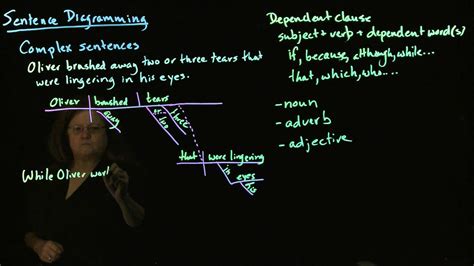 Sentence Diagramming
Complex sentences
Oliver brushed away two or three tears that
were lingering in his eyes.
Oliver brushed tears
away
two
or
three
that were lingering
in
eyes
his
While Oliver worl
Dependent clause
subject + verb + dependent word(s)
if, because, although, while...
that, which, who...
- noun
- adverb
- adjective